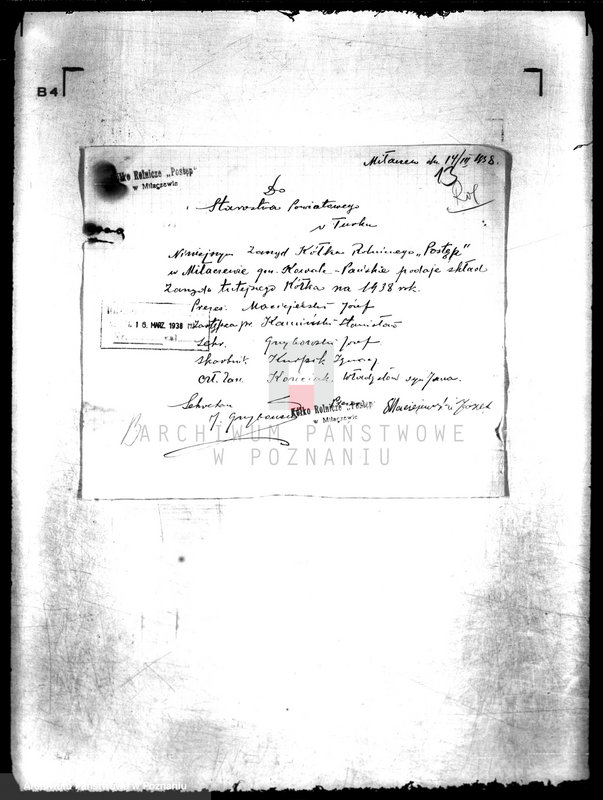 B4
Miłaczew dn. 14/III 1938.
Kółko Rolnicze „Postęp"
w Miłaczewie
13
Rol
Do
Starostwa Powiatowego
w Turku
Niniejszym Zarząd Kółka Rolniczego „Postęp"
w Miłaczewie gm. Kowale-Pańskie podaje skład
Zarządu tutejszego Kółka na 1938 rok.
Prezes. Maciejewski Józef
16. MARZ. 1938
Zastępca pr. Kamiński Stanisław
Sekr. Grzybowski Józef
Skarbnik Ignacy
Czł. Zarz. Władysław syn Jana.
Sekretarz Prezes
J. Grzybowski Maciejewski Józef
Kółko Rolnicze „Postęp"
w Miłaczewie
ARCHIWUM PAŃSTWOWE
W POZNANIU
Archiwum Państwowe w Poznaniu